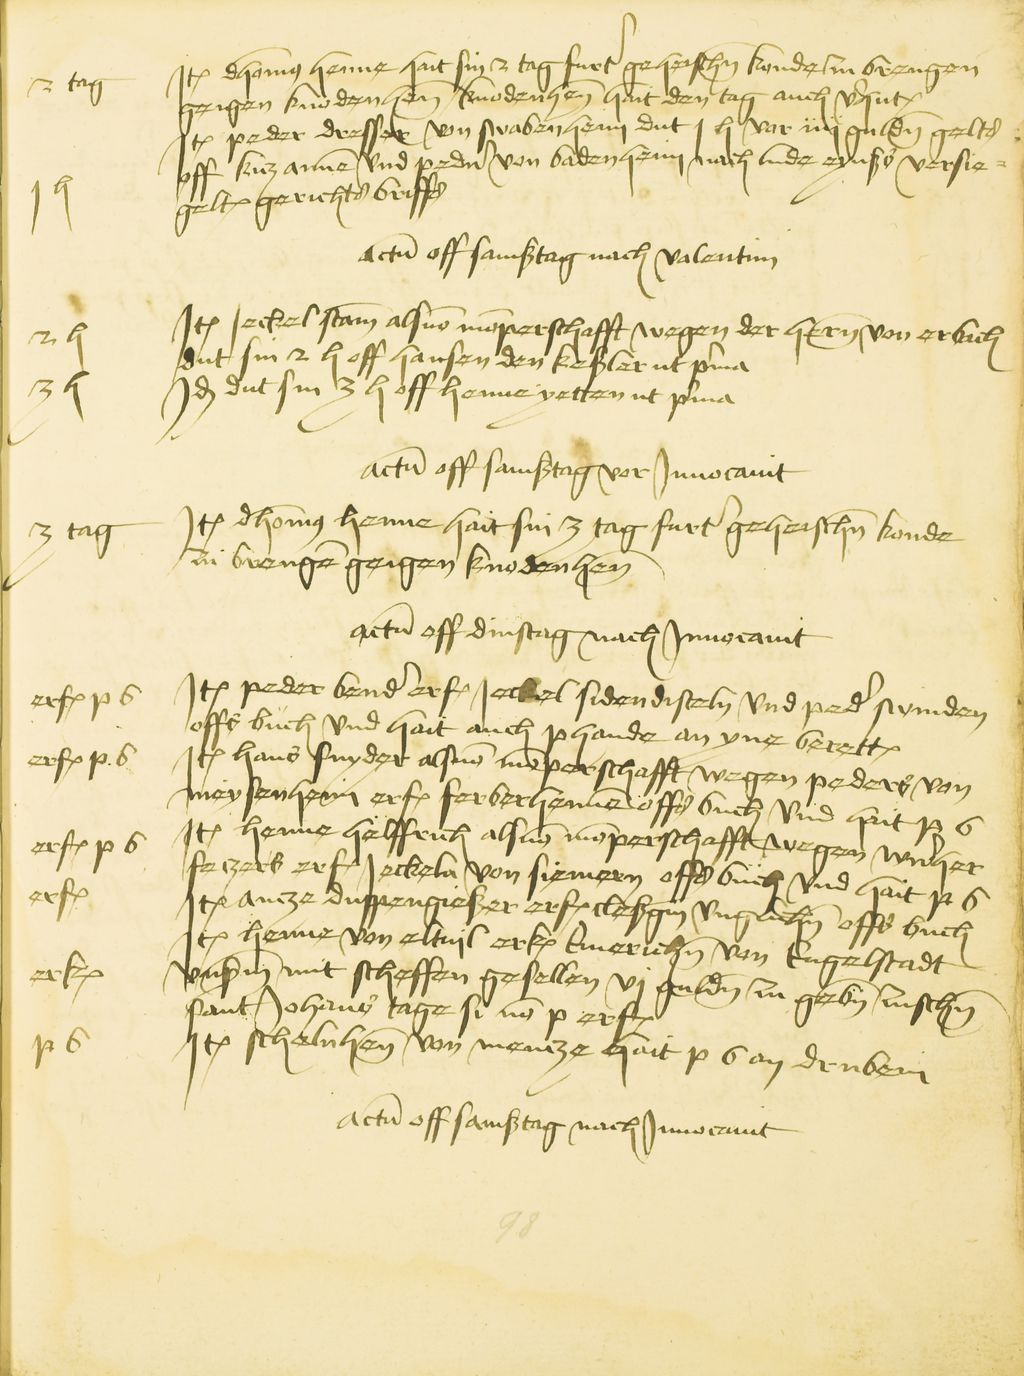 2 tag
Itē dhomꝰ henne hait sin 2 tag furt' geheischñ konde zu brengen
geigen knodenheñ knodenheñ hait den tag auch v'hutē
Itē peder dresser von swabenheim dut 1 h vor iiij guldñ gelts
off kuz annē vnd pedˀ von badenheim nach lude eynßs versie=
1 h
geltē gerichts briffs
Actū off samßtag nach valentini
2 h
Itē Jeckel stam als vō mōperschafft wegen der heñ von erbach
dut sin 2 h off hansen den keßler ut pma
3 h
Idē dut sin 3 h off henne yetten ut pma
Actū off samßtag vor Inuocauit
3 tag
Itē dhomꝰ henne hait sin 3 tag furt' geheischñ konde
zu brengē geigen knodenheñ
Actū off dinstag nach Inuocauit
erfē p b
Itē peder bend' erfē Jeckel sidendisteln vnd ped' swinden
offs buch vnd hait auch phande an yne berettē
erfē p b
Itē hans snyder als vō mōperschafft wegen peders von
meysenheim erfē ferberhennē offs buch vnd hait p b
erfē p b
Itē henne helffrich als vō mōperschafft wegen wiñher
feczers erfē Jeckeln von siemern offs buch vnd hait p b
erfē
Itē ancze duppengießer erfē cleßgin vnglichñ offs buch
erkē
Itē henne von eltuil erkē Emerichñ von Engelstadt
mit scheffen gesellen vj guldñ zu gebñ zuschñ
sant Johans tage si nō p erfē
p b
Itē schelnheñ von mencze hait p b an drubein
Actū off samßtag nach Inuocauit
98